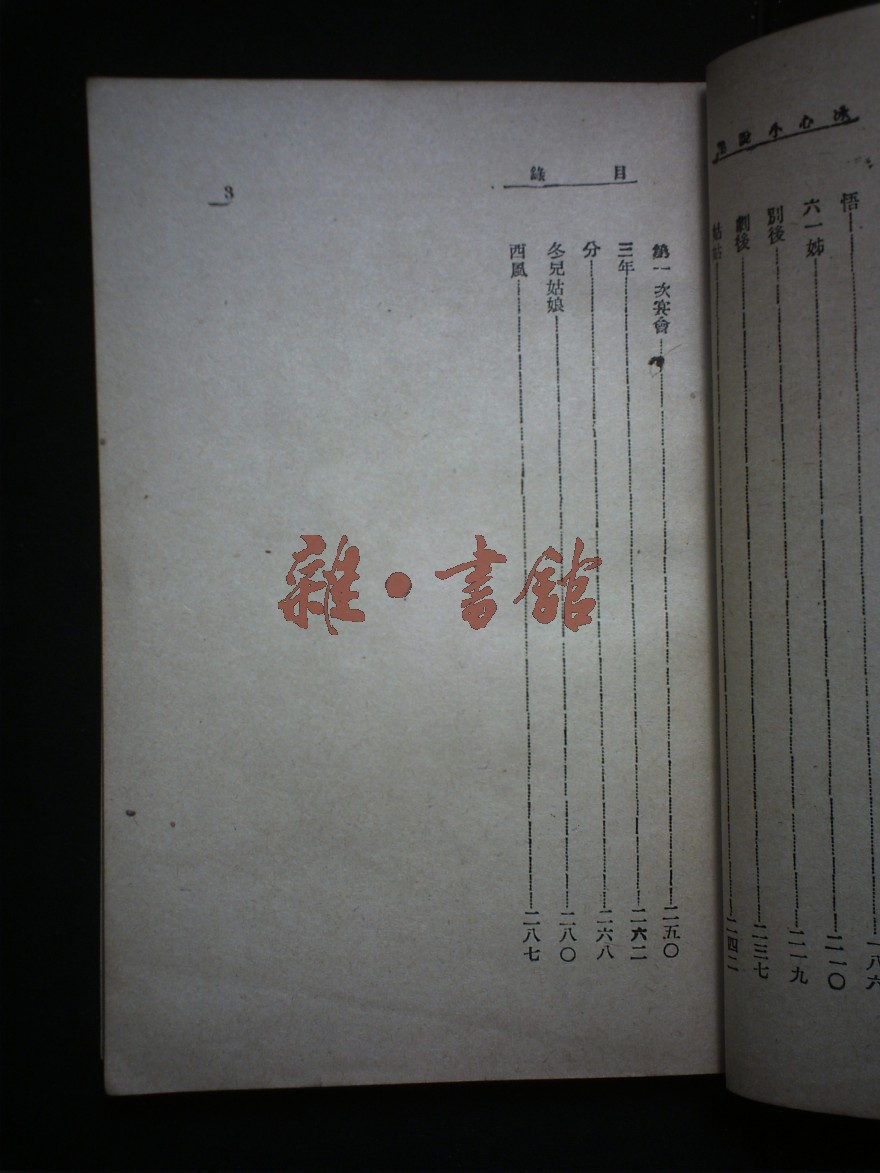 冰心小說集
悟 一八六
六一姊 二一〇
別後 二一九
劇後 二三七
姑姑 二四二
目錄
第一次宴會 二五〇
三年 二六二
分 二六八
冬兒姑娘 二八〇
西風 二八七
3
雜·書館